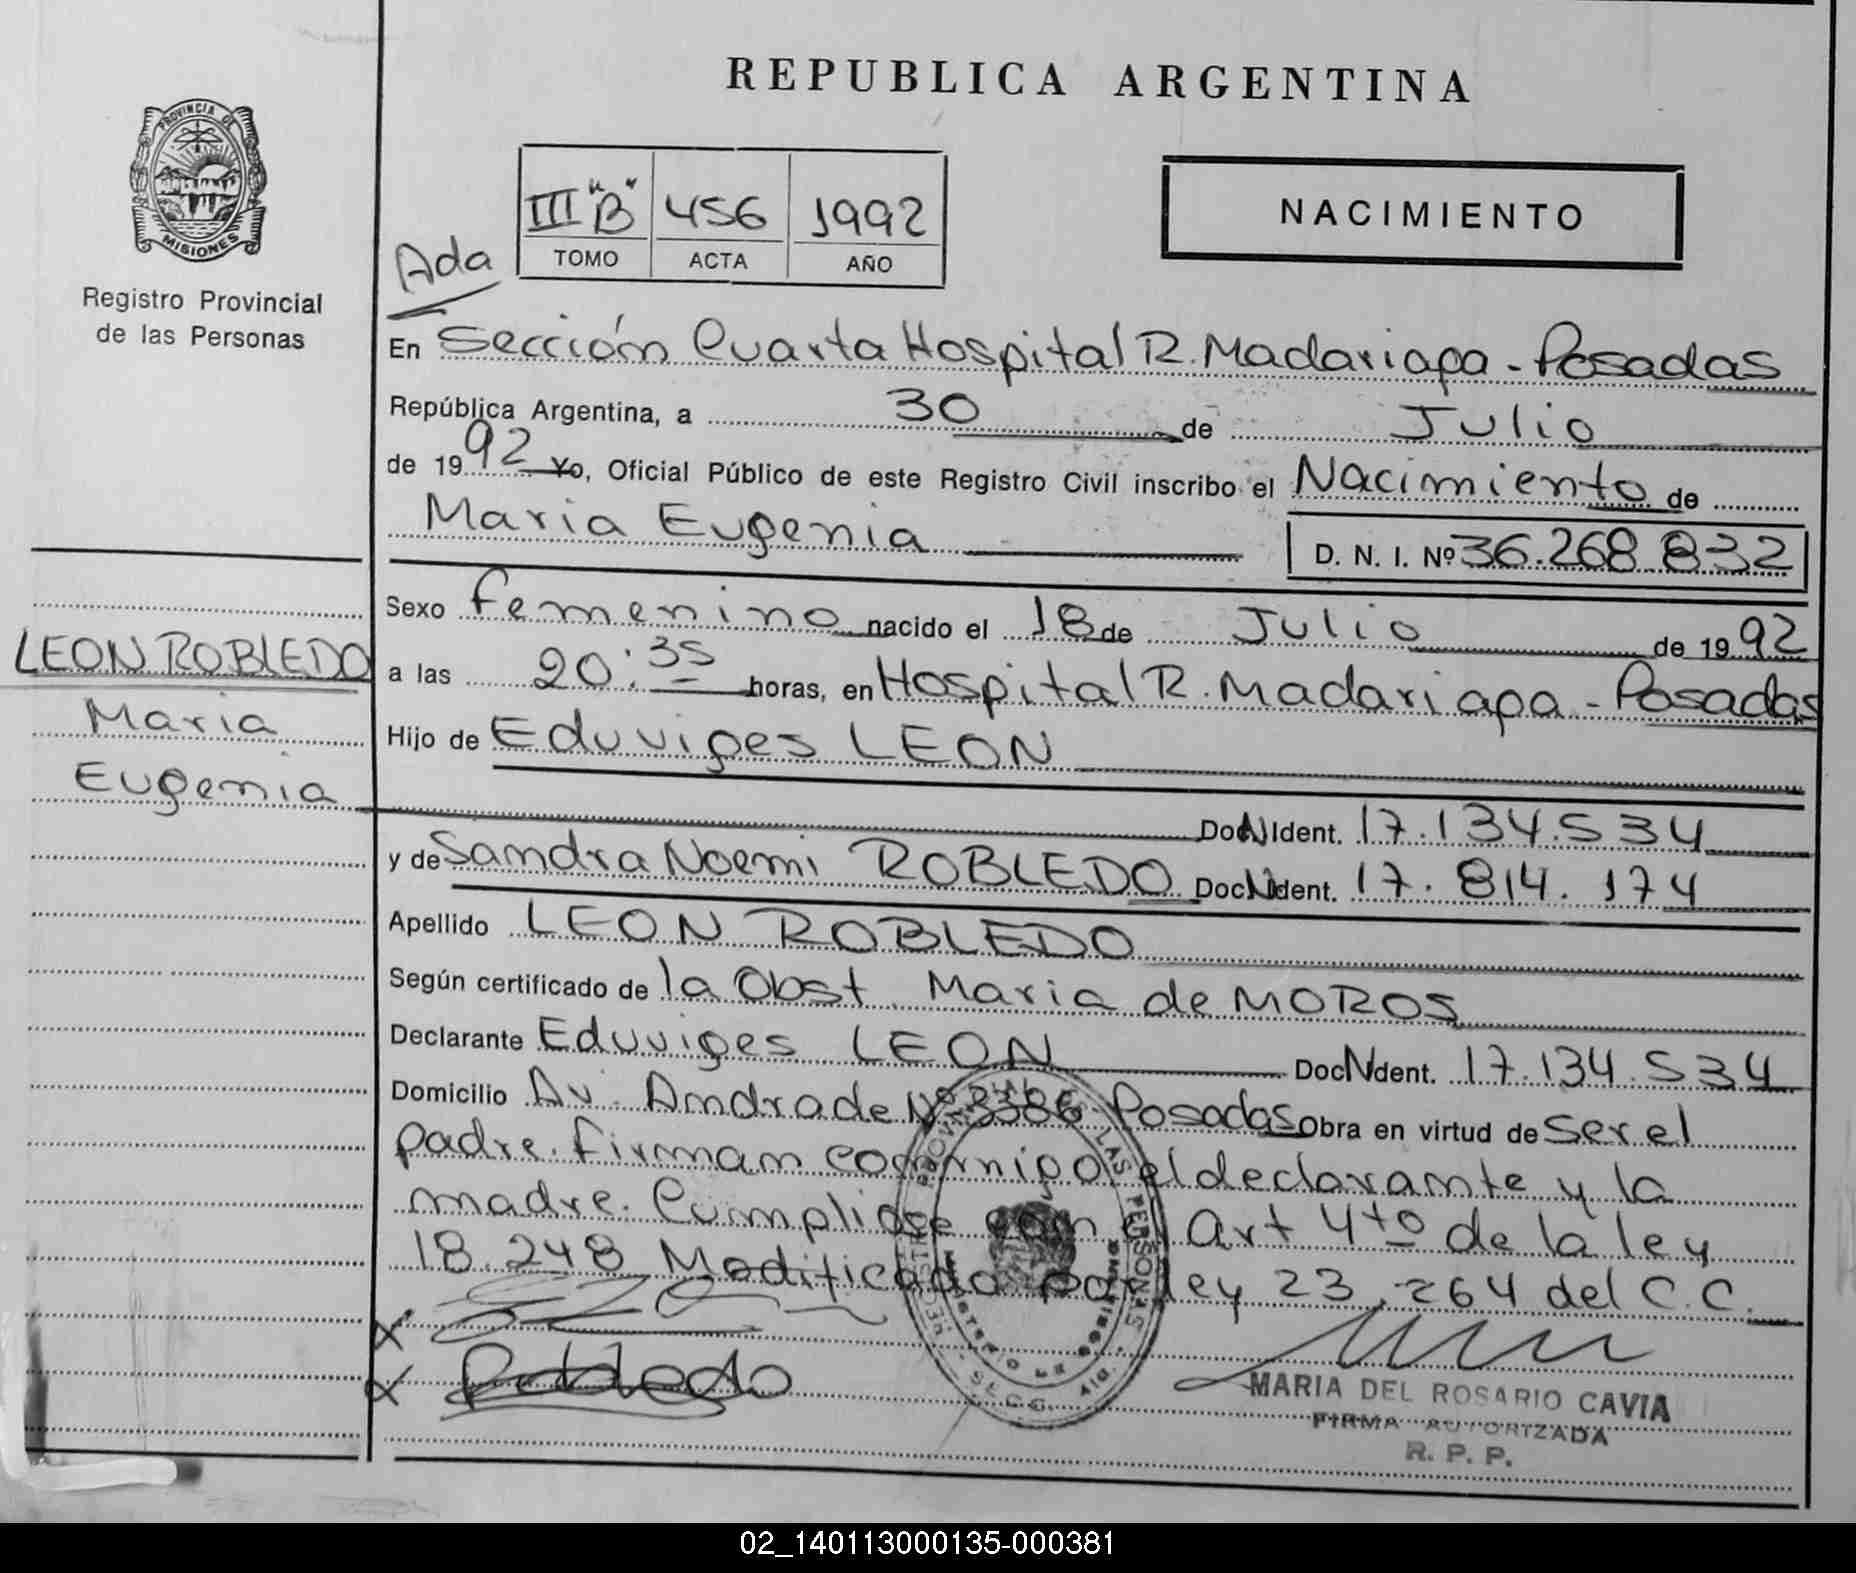 REPUBLICA ARGENTINA
PROVINCIA DE
MISIONES
Registro Provincial
de las Personas
III "B" 456 1992
TOMO ACTA AÑO
NACIMIENTO
Ada
En Sección Cuarta Hospital R. Madariaga - Posadas
República Argentina, a 30 de Julio
de 1992 Yo, Oficial Público de este Registro Civil inscribo el Nacimiento de
Maria Eugenia D. N. I. Nº 36.268.832
Sexo femenino nacido el 18 de Julio de 1992
LEON ROBLEDO
Maria
Eugenia
a las 20:35 horas, en Hospital R. Madariaga - Posadas
Hijo de Eduviges LEON
Doc N Ident. 17.134.534
y de Sandra Noemi ROBLEDO Doc N Ident. 17.814.174
Apellido LEON ROBLEDO
Según certificado de la Obst. Maria de MOROS
Declarante Eduviges LEON Doc N Ident. 17.134.534
Domicilio Av. Andrade Nº 3386 - Posadas Obra en virtud de Ser el
padre. firman conmigo el declarante y la
madre. Cumpliose con el Art 4to de la ley
18.248 Modificado por ley 23.264 del C.C.
X
X Robledo
REGISTRO PROVINCIAL DE LAS PERSONAS
MARIA DEL ROSARIO CAVIA
FIRMA AUTORIZADA
R. P. P.
02_140113000135-000381